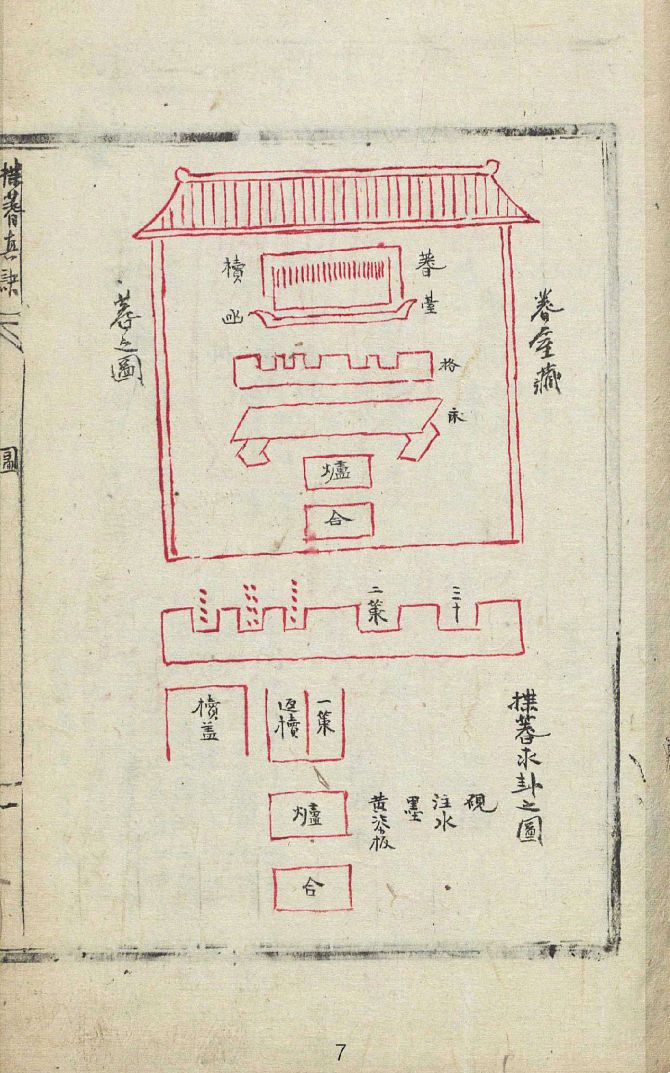 蓍室藏
蓍之圖
蓍
櫝
臺
格
床
爐
合
三十
二策
揲蓍求卦之圖
一策
返櫝
櫝盖
硯
注水
墨
黄漆板
爐
合
揲蓍真訣
圖
7